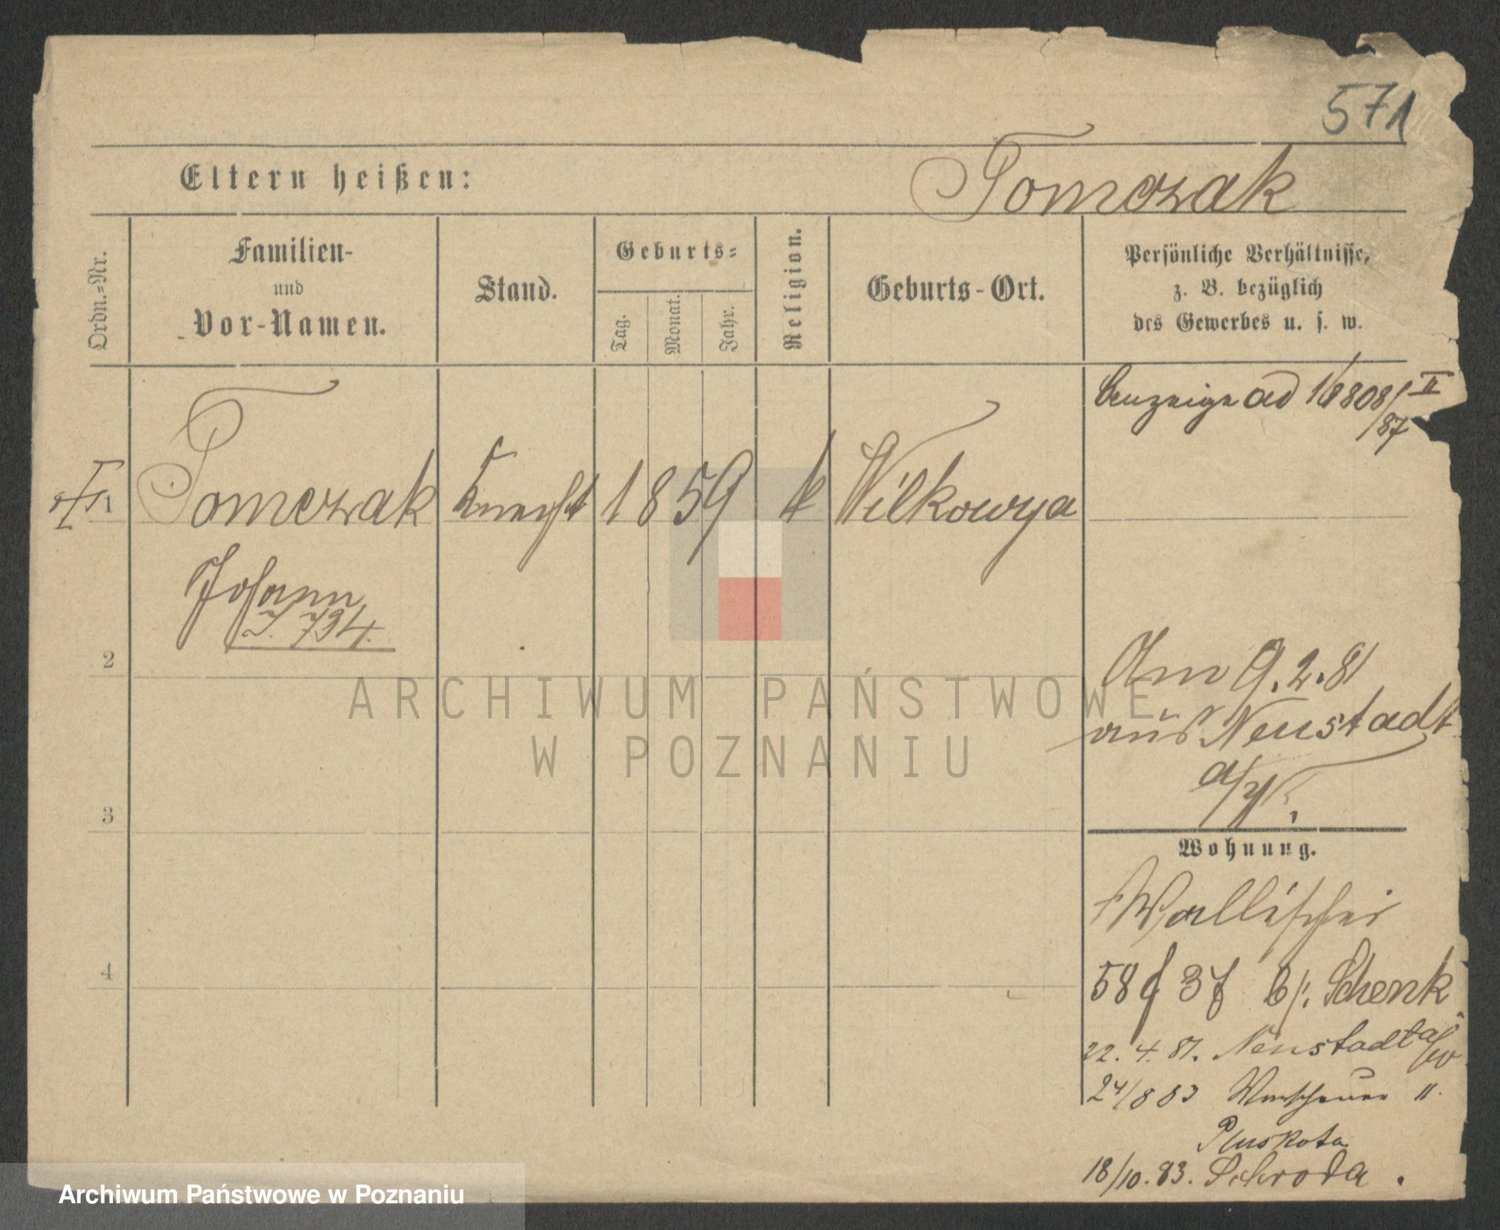 571
Eltern heißen: Tomczak
Ordn.-Nr.
Familien-
und
Vor-Namen.
Stand.
Geburts-
Tag.
Monat.
Jahr.
Religion.
Geburts-Ort.
Persönliche Verhältnisse,
z. B. bezüglich
des Gewerbes u. s. w.
Anzeige ad 18808/II
/87
1 Tomczak Knecht 1859 k Wilkowya
Johann
J. 734.
2
Am 9.2.81
aus Neustadt
a/W.
3
Wohnung.
Wallischei
58/37 b/. Schenk
4
22. 4. 81. Neustadt a/W
24/8 83 Warschauer "
Pluskota
18/10. 83. Schroda.
ARCHIWUM PAŃSTWOWE
W POZNANIU
Archiwum Państwowe w Poznaniu